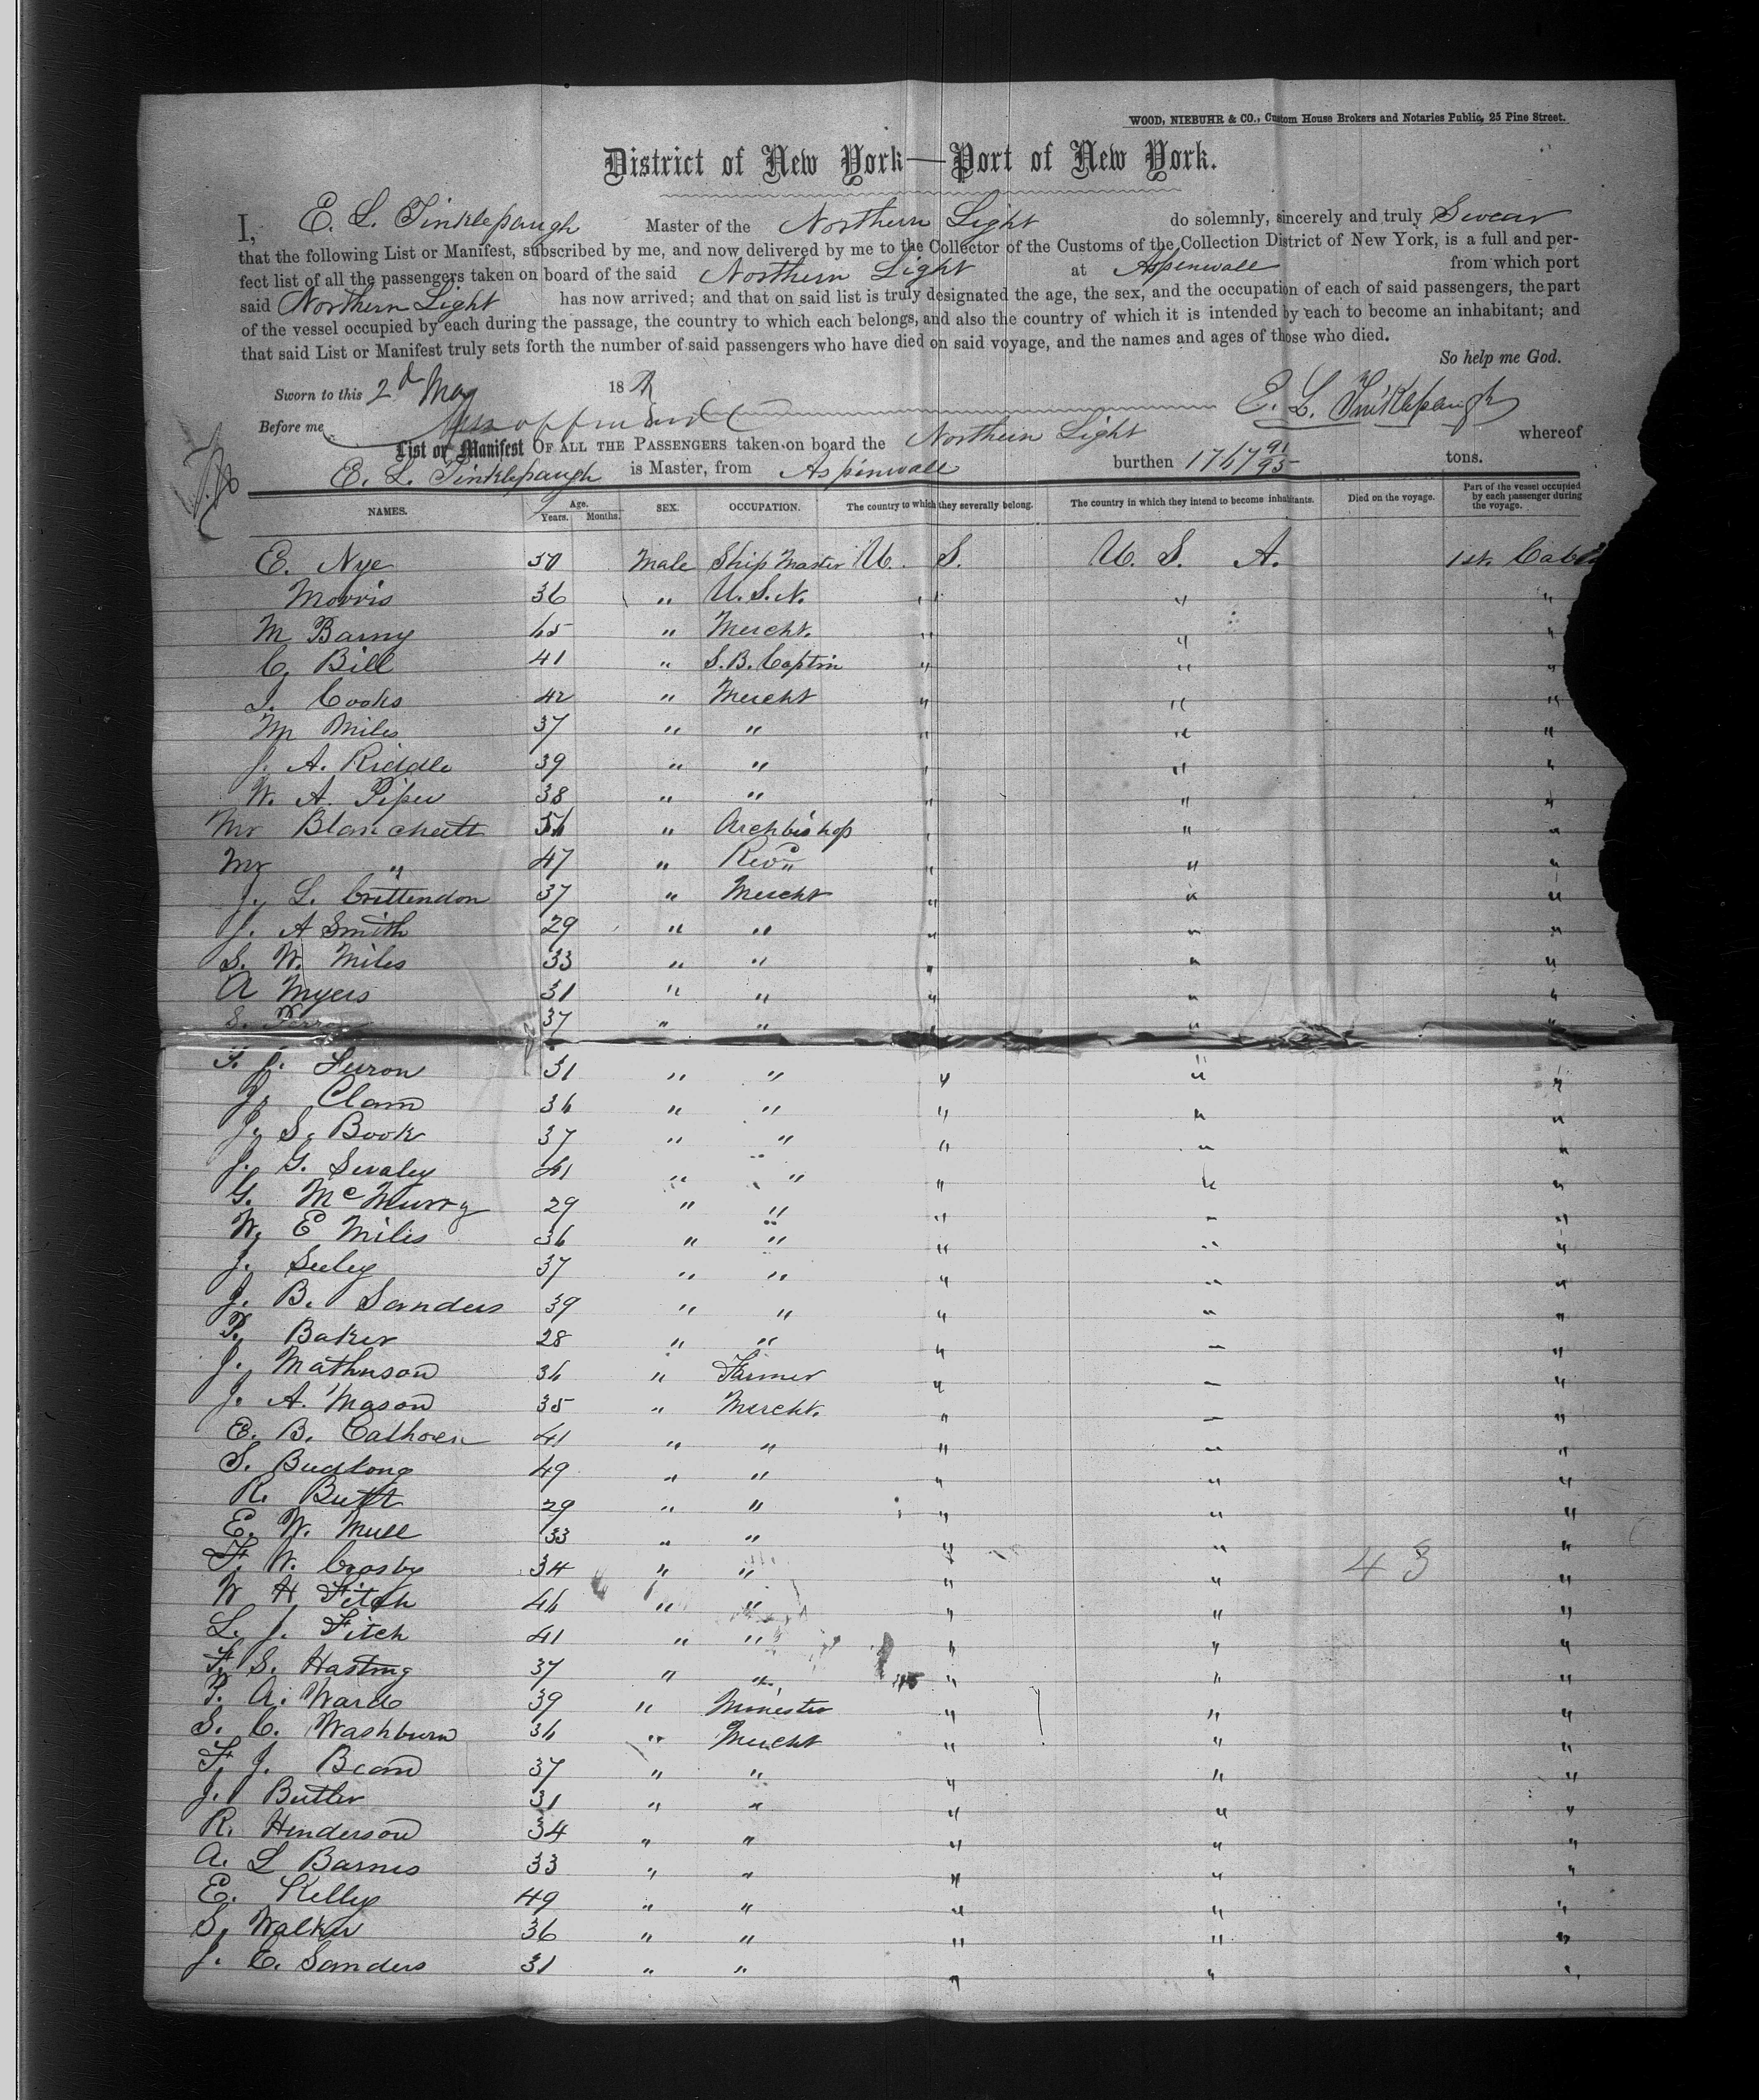 WOOD, NIEBUHR & CO., Custom House Brokers and Notaries Public, 25 Pine Street.
District of New York—Port of New York.
I, E. L. Tinklepaugh Master of the Northern Light do solemnly, sincerely and truly Swear
that the following List or Manifest, subscribed by me, and now delivered by me to the Collector of the Customs of the Collection District of New York, is a full and per-
fect list of all the passengers taken on board of the said Northern Light at Aspinwall from which port
said Northern Light has now arrived; and that on said list is truly designated the age, the sex, and the occupation of each of said passengers, the part
of the vessel occupied by each during the passage, the country to which each belongs, and also the country of which it is intended by each to become an inhabitant; and
that said List or Manifest truly sets forth the number of said passengers who have died on said voyage, and the names and ages of those who died.
So help me God.
Sworn to this 2d May 18
E. L. Tinklepaugh
Before me
List or Manifest OF ALL THE PASSENGERS taken on board the Northern Light whereof
E. L. Tinklepaugh is Master, from Aspinwall burthen 1767 91/95 tons.
NAMES. Age. Years. Months. SEX. OCCUPATION. The country to which they severally belong. The country in which they intend to become inhabitants. Died on the voyage. Part of the vessel occupied by each passenger during the voyage.
E. Nye 30 Male Ship Master U. S. U. S. A. 1st Cabin
Morris 36 " U.S.N. " " "
M Barny 65 " Mercht. " " "
C. Bill 41 " S.B. Captin " " "
J. Cooks 42 " Mercht " " "
M Miles 37 " " " " "
J. A. Riddle 39 " " " " "
W. A. Piper 38 " " " " "
Mr Blanchett 56 " Archbishop " " "
Mr " 47 " Revd " " "
J. L. Crittendon 37 " Mercht " " "
J. A Smith 29 " " " " "
S. W. Miles 33 " " " " "
A Myers 31 " " " " "
S. 37 " " " " "
F. J. Luron 31 " " " " "
J. Clam 36 " " " " "
J. S. Book 37 " " " " "
J. G. Sevaley 41 " " " " "
G. McMurry 29 " " " " "
W. E Miles 36 " " " " "
J. Seeley 37 " " " " "
J. B. Sanders 39 " " " " "
P. Baker 28 " " " " "
J. Mathuson 36 " Farmer " " "
J. A. Mason 35 " Mercht. " " "
E. B. Calhoen 41 " " " " "
S. Budlong 49 " " " " "
R. Butt 29 " " " " "
E. W. Mull 33 " " " " "
F. W. Crosby 34 " " " " 43 "
W H Fitch 46 " " " " "
L. J. Fitch 41 " " " " "
F. S. Hasting 37 " " " " "
P. A. Ward 39 " Minester " " "
S. C. Washburn 36 " Mercht " " "
F. J. Beam 37 " " " " "
J. Butler 31 " " " " "
R. Henderson 34 " " " " "
A. L Barnes 33 " " " " "
E. Kelley 49 " " " " "
S. Walker 36 " " " " "
J. C. Sanders 31 " " " " "